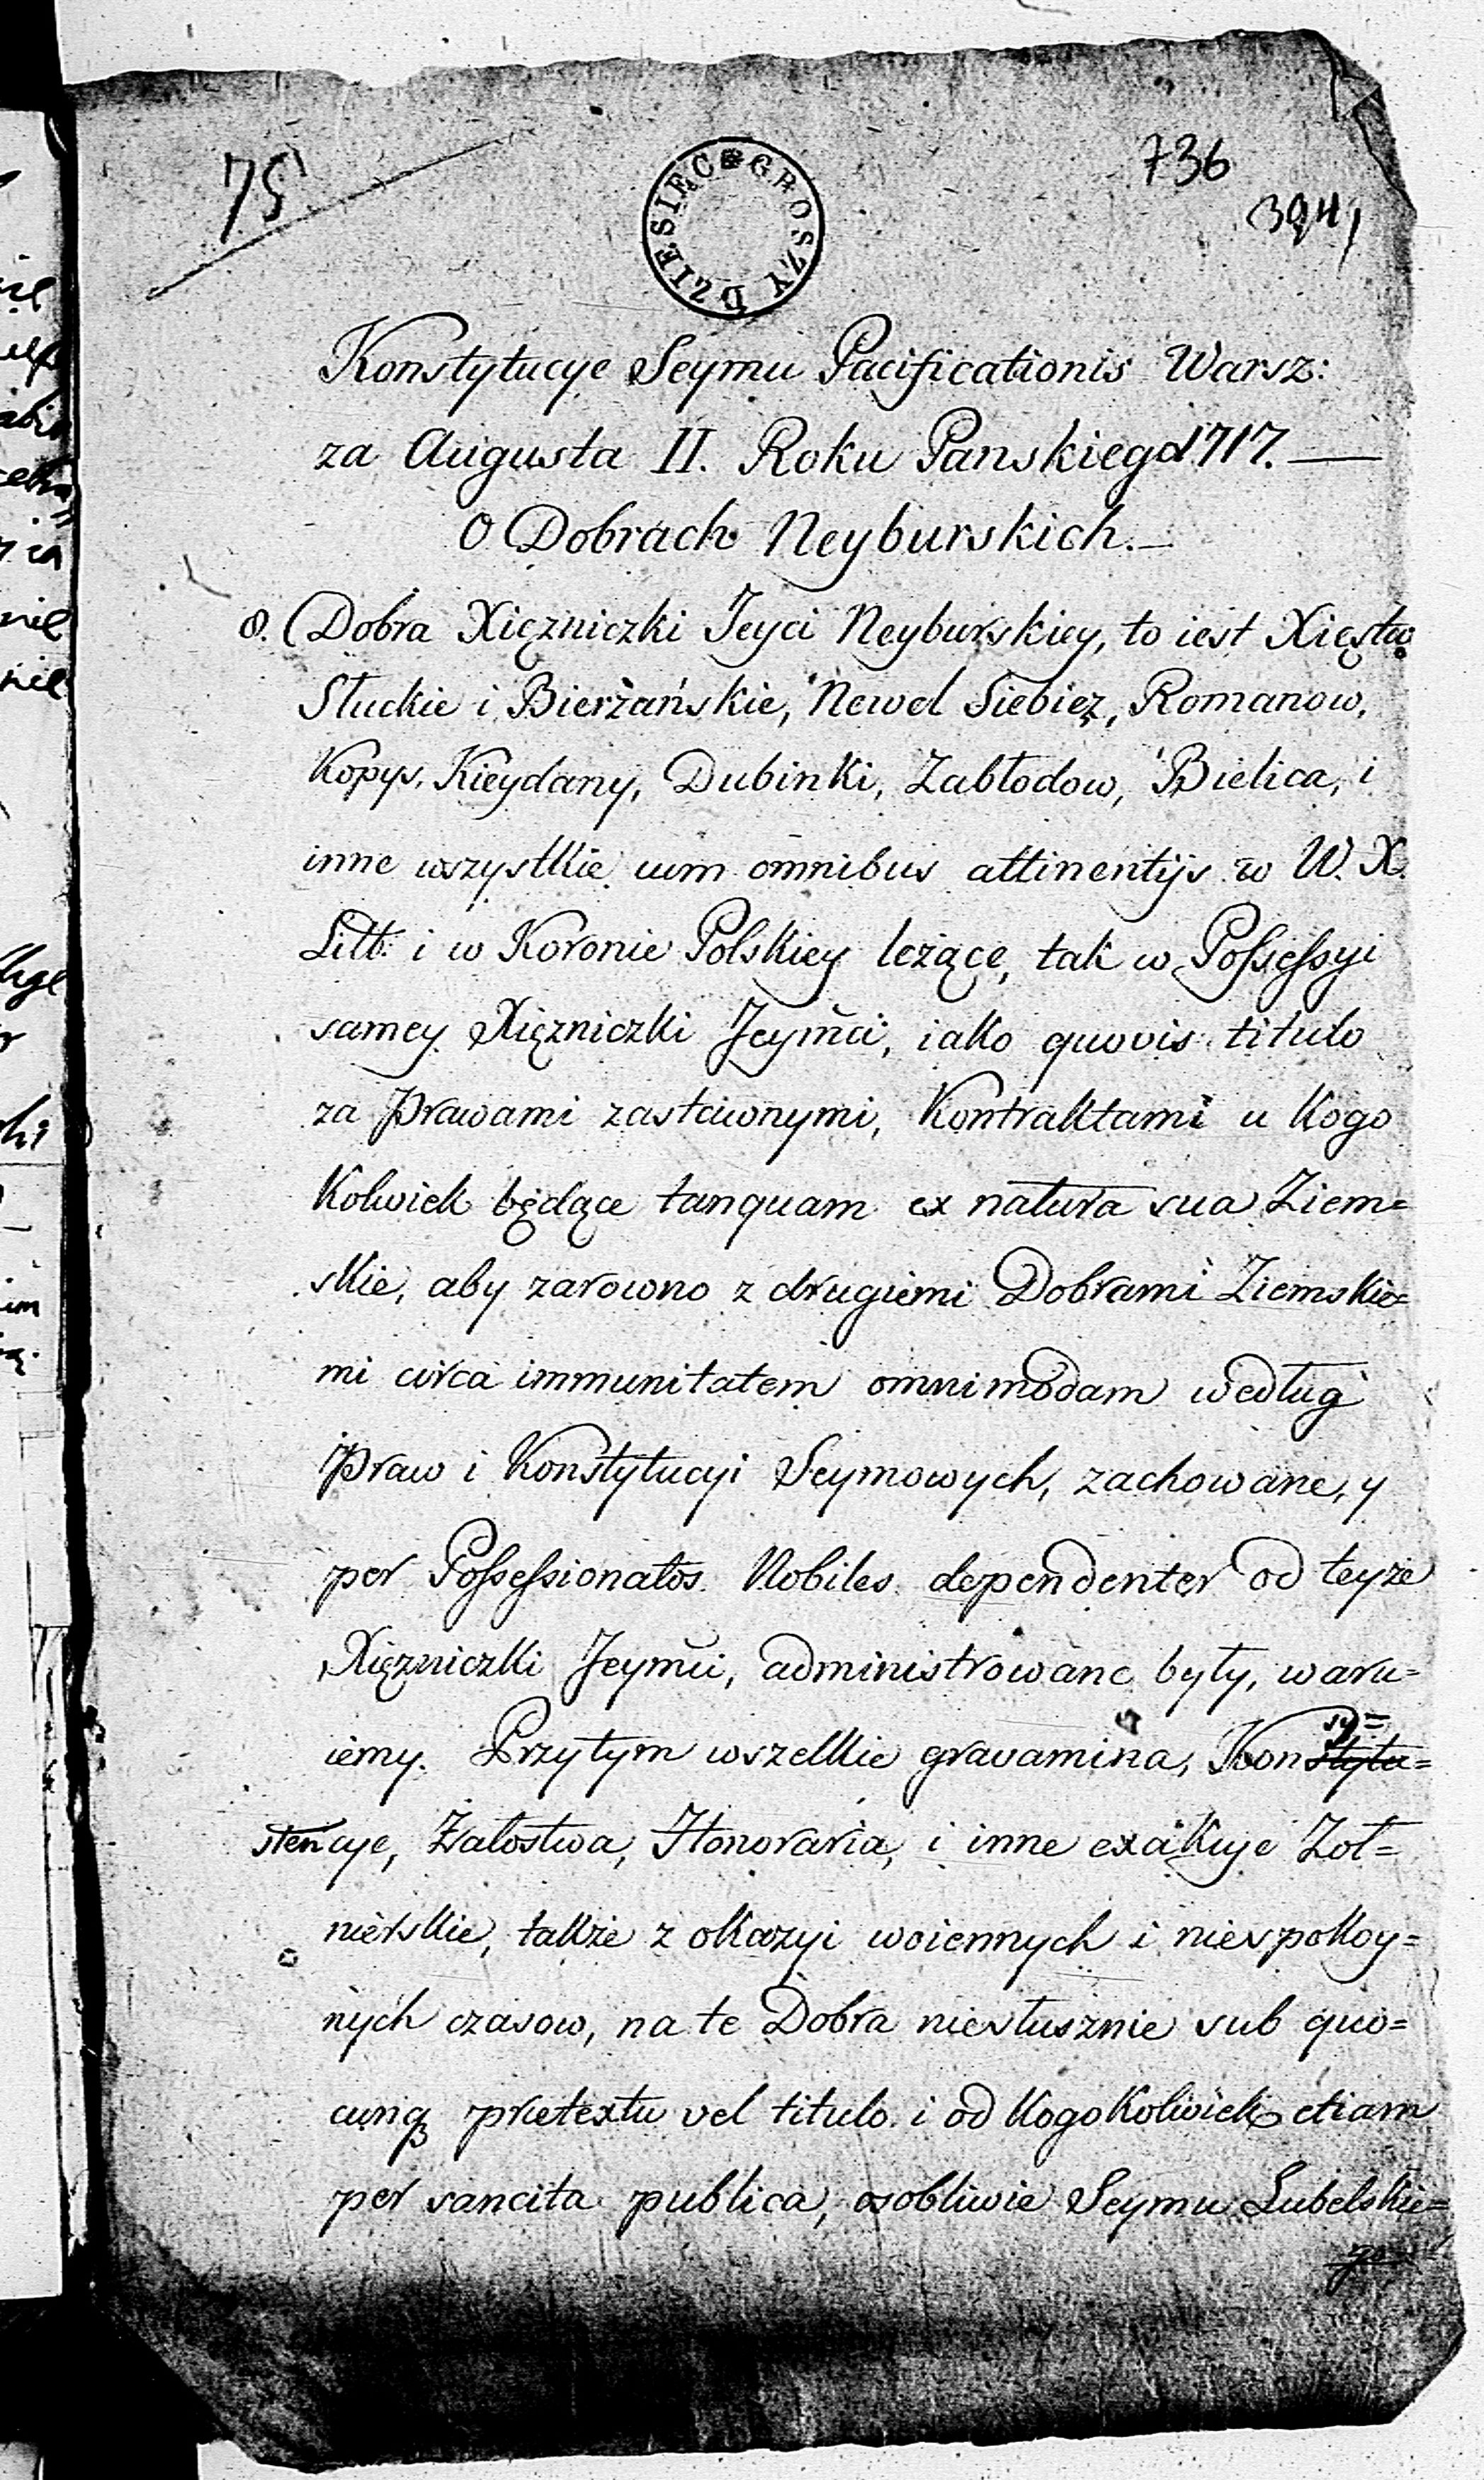 75
DZIESIĘC GROSZY
736
3941
Konstytucye Seymu Pacificationis Warsz:
za Augusta II. Roku Panskiego 1717. —
O Dobrach Neyburskich. —
8. Dobra Xięzniczki Jeyci Neyburskiey, to iest Xięstwo
Słuckie i Bierżańskie, Newel Siebież, Romanow,
Kopys, Kieydany, Dubinki, Zabłodow, Bielica, i
inne wszystkie cum omnibus attinentijs w W. X.
Litt: i w Koronie Polskiey leżące, tak w Possessyi
samey Xięzniczki Jeymci, iako quovis titulo
za Prawami zastawnymi, Kontraktami u Kogo
Kolwiek będące tanquam ex natura sua Ziem=
skie, aby zarowno z drugiemi Dobrami Ziemskie=
mi circa immunitatem omnimodam według
Praw i Konstytucyi Seymowych, zachowane, y
per Possessionatos Nobiles dependenter od teyże
Xięzniczki Jeymci, administrowane były, waru=
iemy. Przytym wszelkie gravamina, Konstytu=
sy=
stencye, Załostwa, Honoraria, i inne exakcye Żoł=
nierskie, także z okazyi woiennych i niespokoy=
nych czasow, na te Dobra niesłusznie sub quo=
cunq pretextu vel titulo i od KogoKolwiek etiam
per sancita publica, osobliwie Seymu Lubelskie=
go